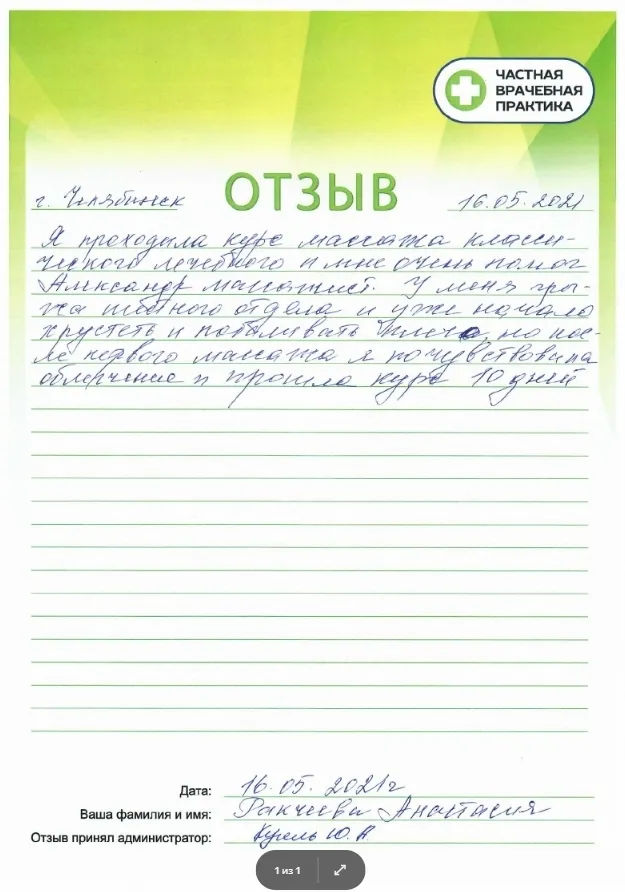 ЧАСТНАЯ
ВРАЧЕБНАЯ
ПРАКТИКА
ОТЗЫВ
г. Челябинск 16.05.2021
Я проходила курс массажа класси-
ческого лечебного и мне очень помог
Александр массажист. У меня гры-
жа шейного отдела и уже начало
хрустеть и побаливать плечо, но пос-
ле первого массажа я почувствовала
облегчение и прошла курс 10 дней
Дата: 16.05.2021г
Ваша фамилия и имя: Ракчеева Анастасия
Отзыв принял администратор: Ю.А.
1 из 1